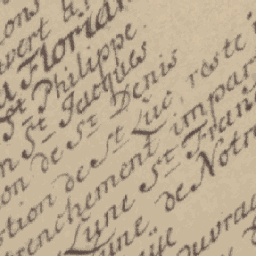 ons
vert à
Florian
St Philippe
n St Jacques
on de St Denis
stion de St Luc, reste
trenchement impar
Lune St Fran
Lune de Notre
ouvra